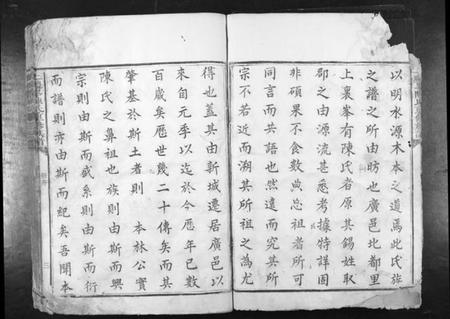 以明水源木本之道為此氏族
之譜之所由昉也廣邑北都里
上裏峯有陳氏者原其錫姓取
郡之由源流甚悉考據特詳固
非碩果不食數典忘祖者所可
同言而共語也然遠而究其所
宗不若近而溯其所祖之為尤
得也蓋其由新城遷居廣邑以
來自元季以迄於今歷年已數
百歲矣歷世幾二十傳矣而其
肇基於斯土者則 本林公實
陳氏之鼻祖也族則由斯而興
宗則由斯而盛系則由斯而衍
而譜則亦由斯而紀矣吾聞本